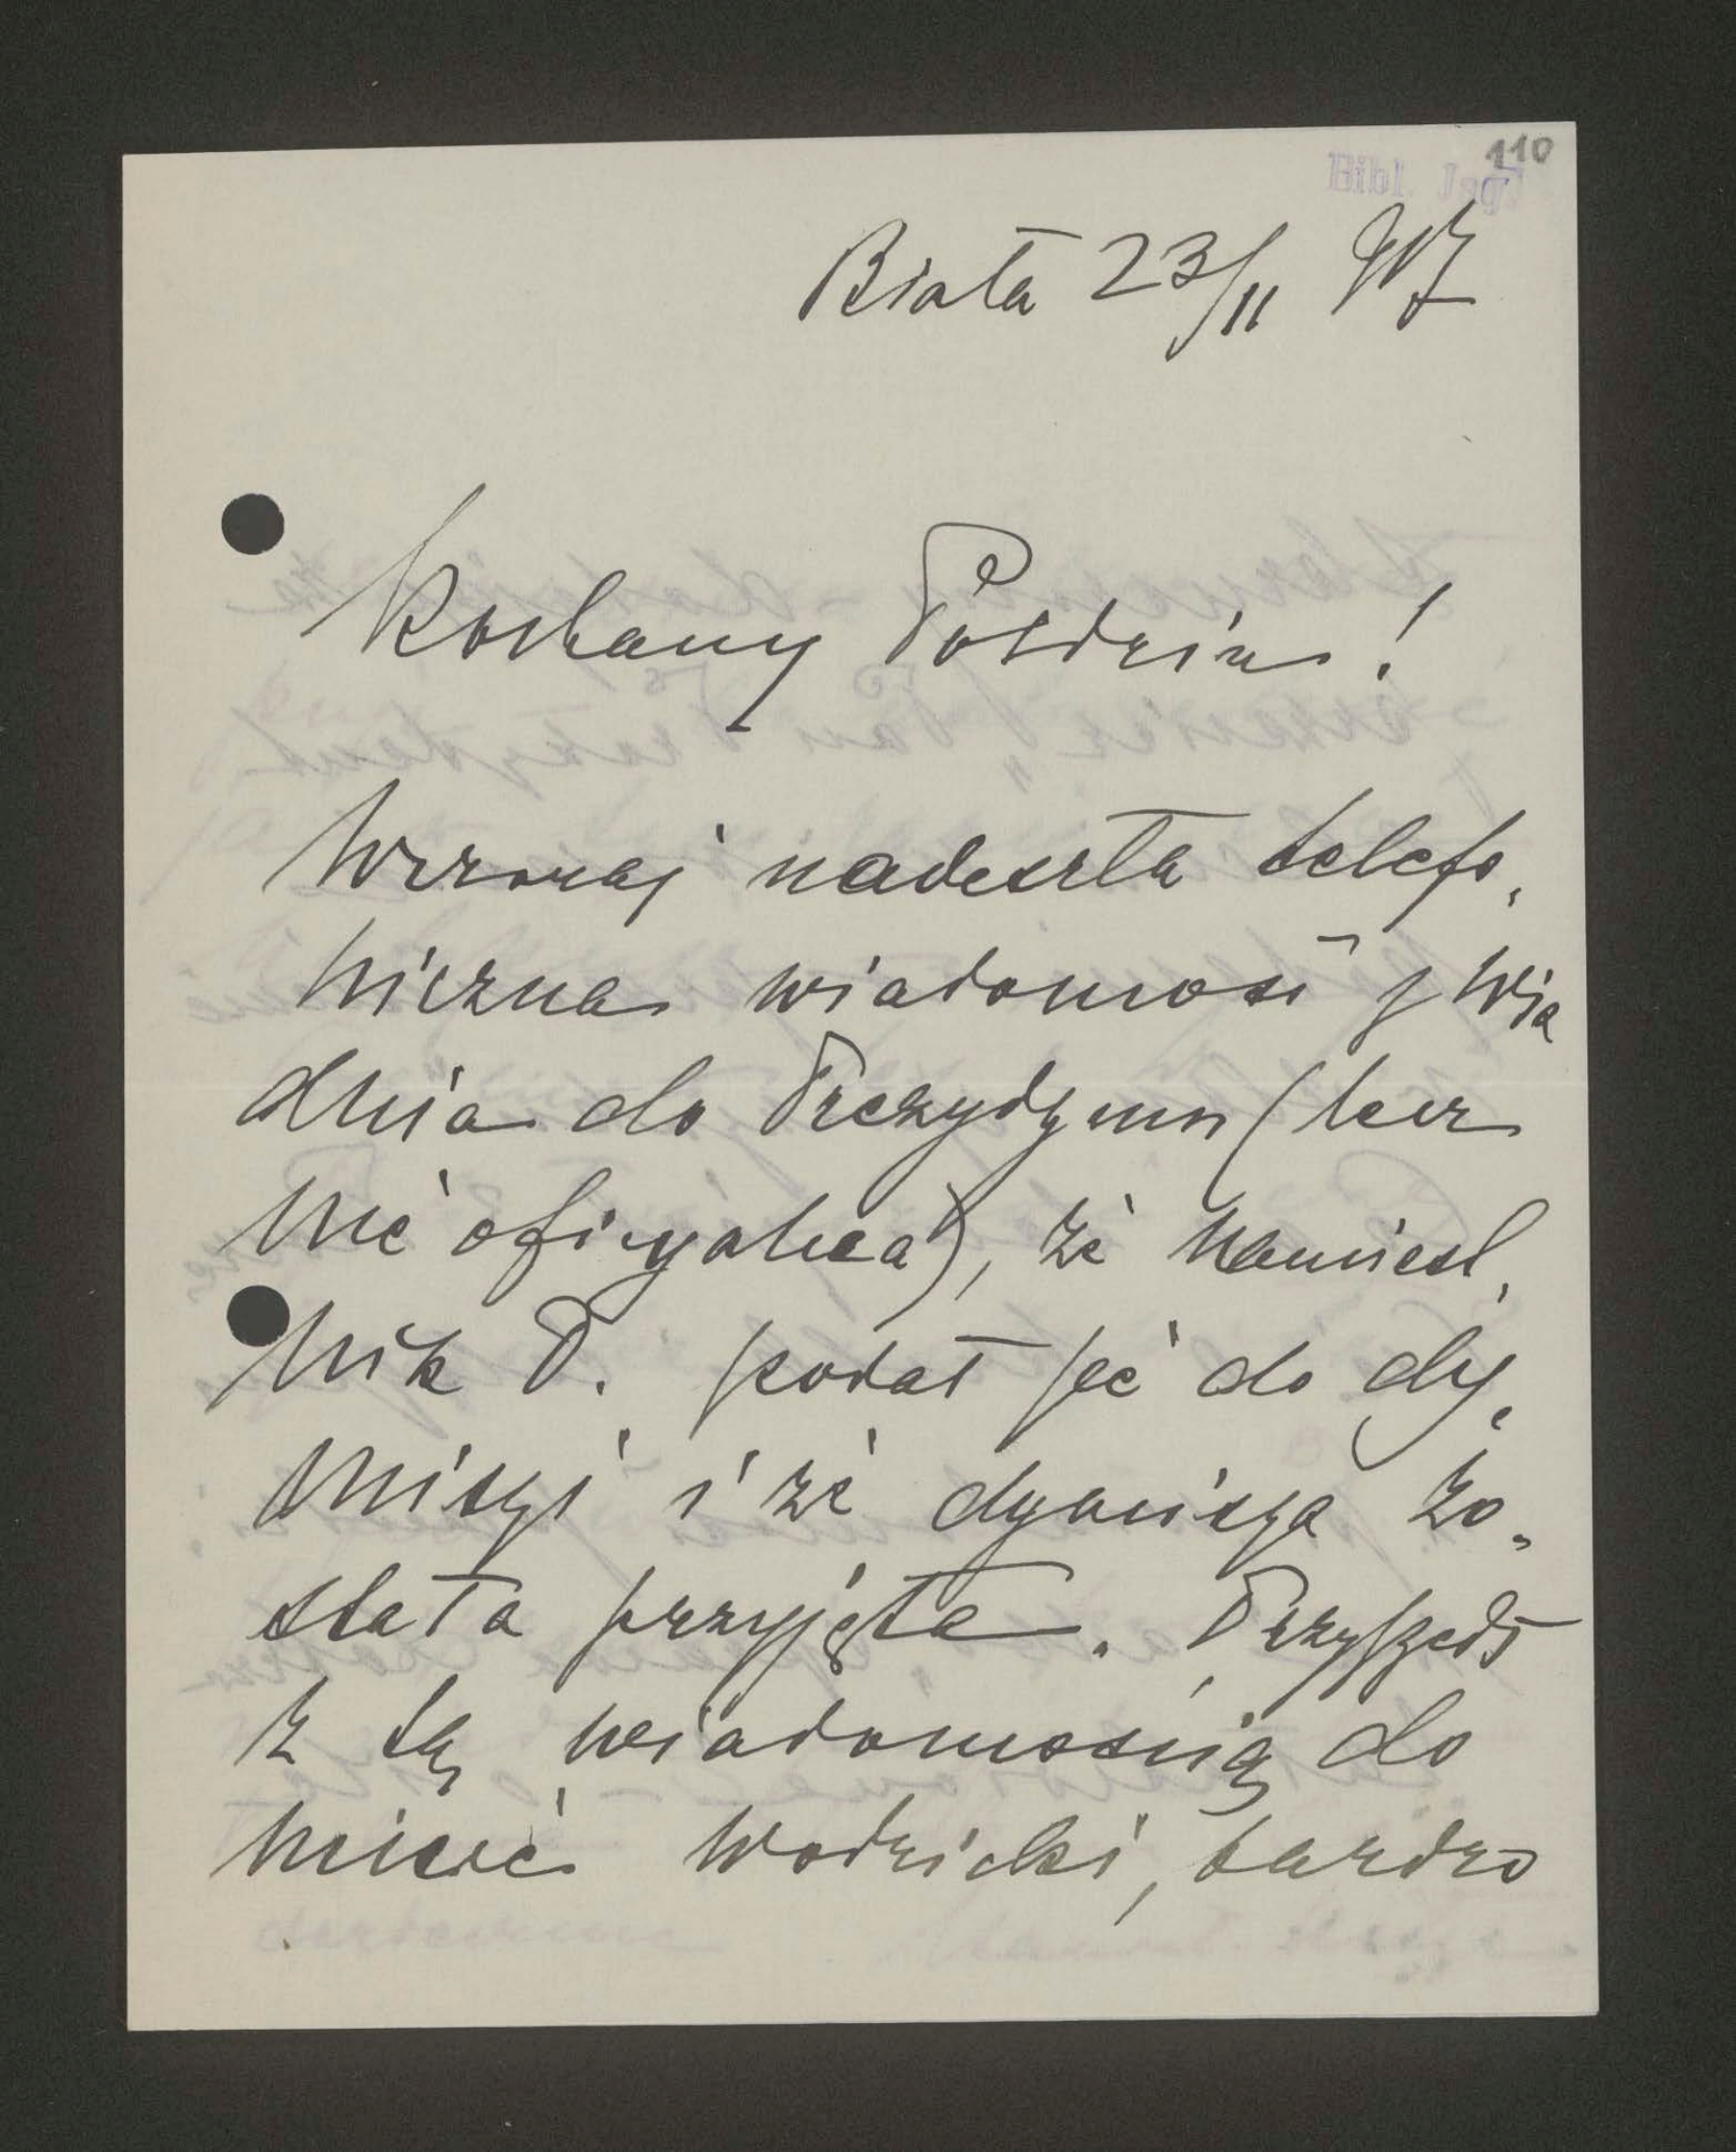 110
Bibl. Jag.
Biała 23/II 917
Kochany Połdziu!
Wczoraj nadeszła telefo,
niczna wiadomość z Wie
dnia do Prezydyum (lecz
nie oficyalna), że Namiest,
nik D. podał się do dy,
misyi i że dymisya zo,
stała przyjęta. Przyszedł
z tą wiadomością do
mnie Wodzicki, bardzo